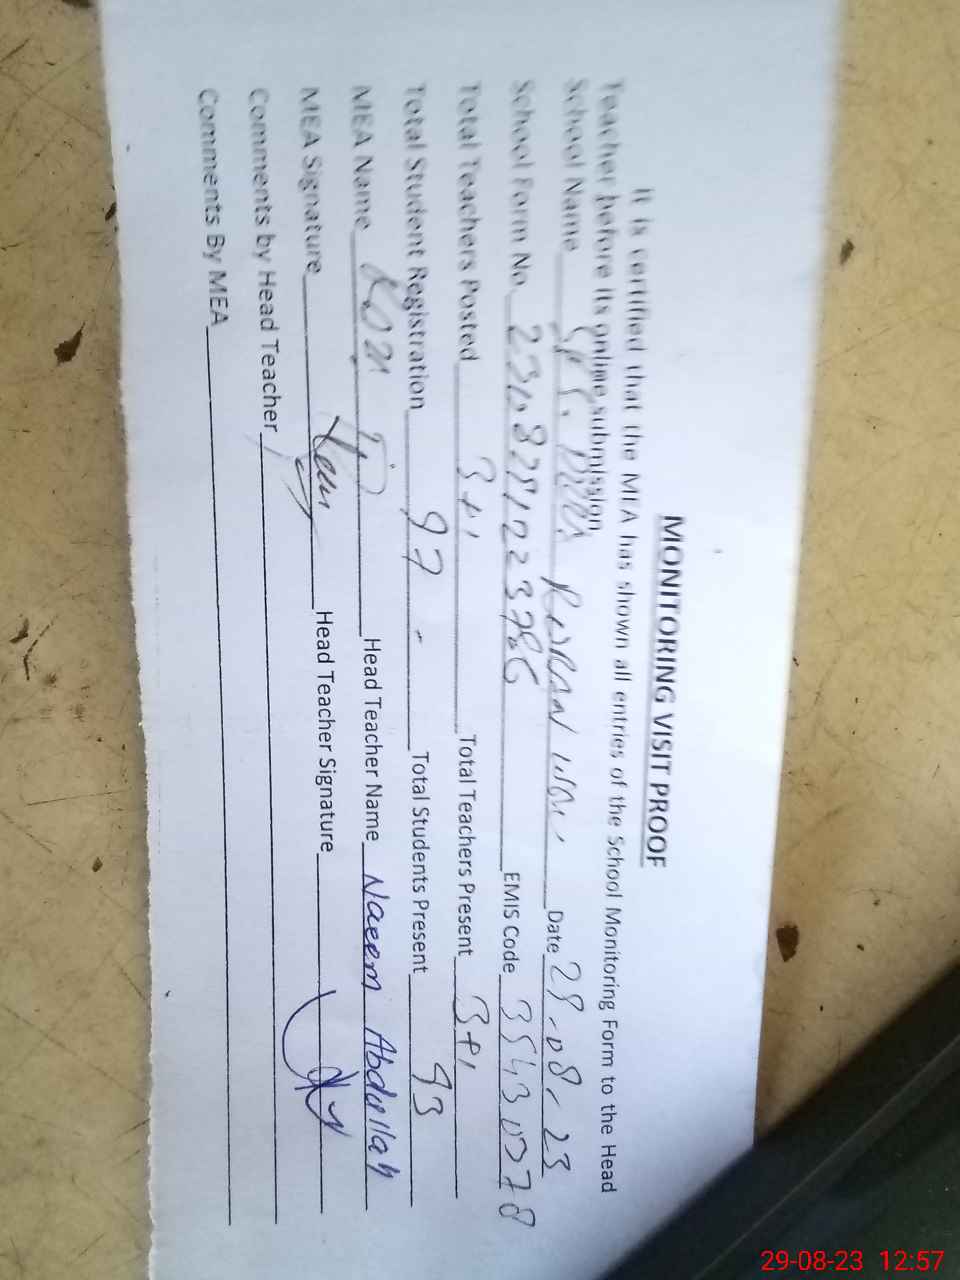 MONITORING VISIT PROOF
It is certified that the MEA has shown all entries of the School Monitoring Form to the Head
Teacher before its online submission
School Name Date 29-08-23
School Form No EMIS Code
Total Teachers Posted 3+1 Total Teachers Present 3+1
Total Student Registration 97 Total Students Present 93
MEA Name Head Teacher Name Naeem Abdullah
MEA Signature Head Teacher Signature
Comments by Head Teacher
Comments By MEA
29-08-23 12:57